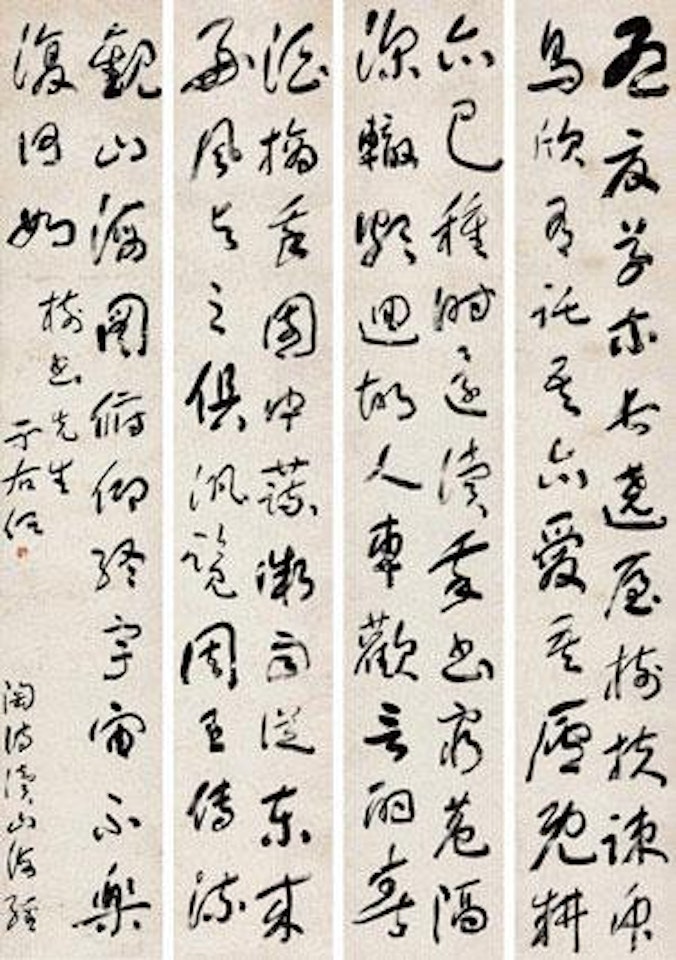 孟夏草木長遶屋樹扶疎眾
鳥欣有託吾亦愛吾廬既耕
亦已種時還讀我書窮巷隔
深轍頗迴故人車歡言酌春
酒摘我園中蔬微雨從東來
好風與之俱汎覽周王傳流
觀山海圖俯仰終宇宙不樂
復何如
樹書先生
于右任
陶詩讀山海經